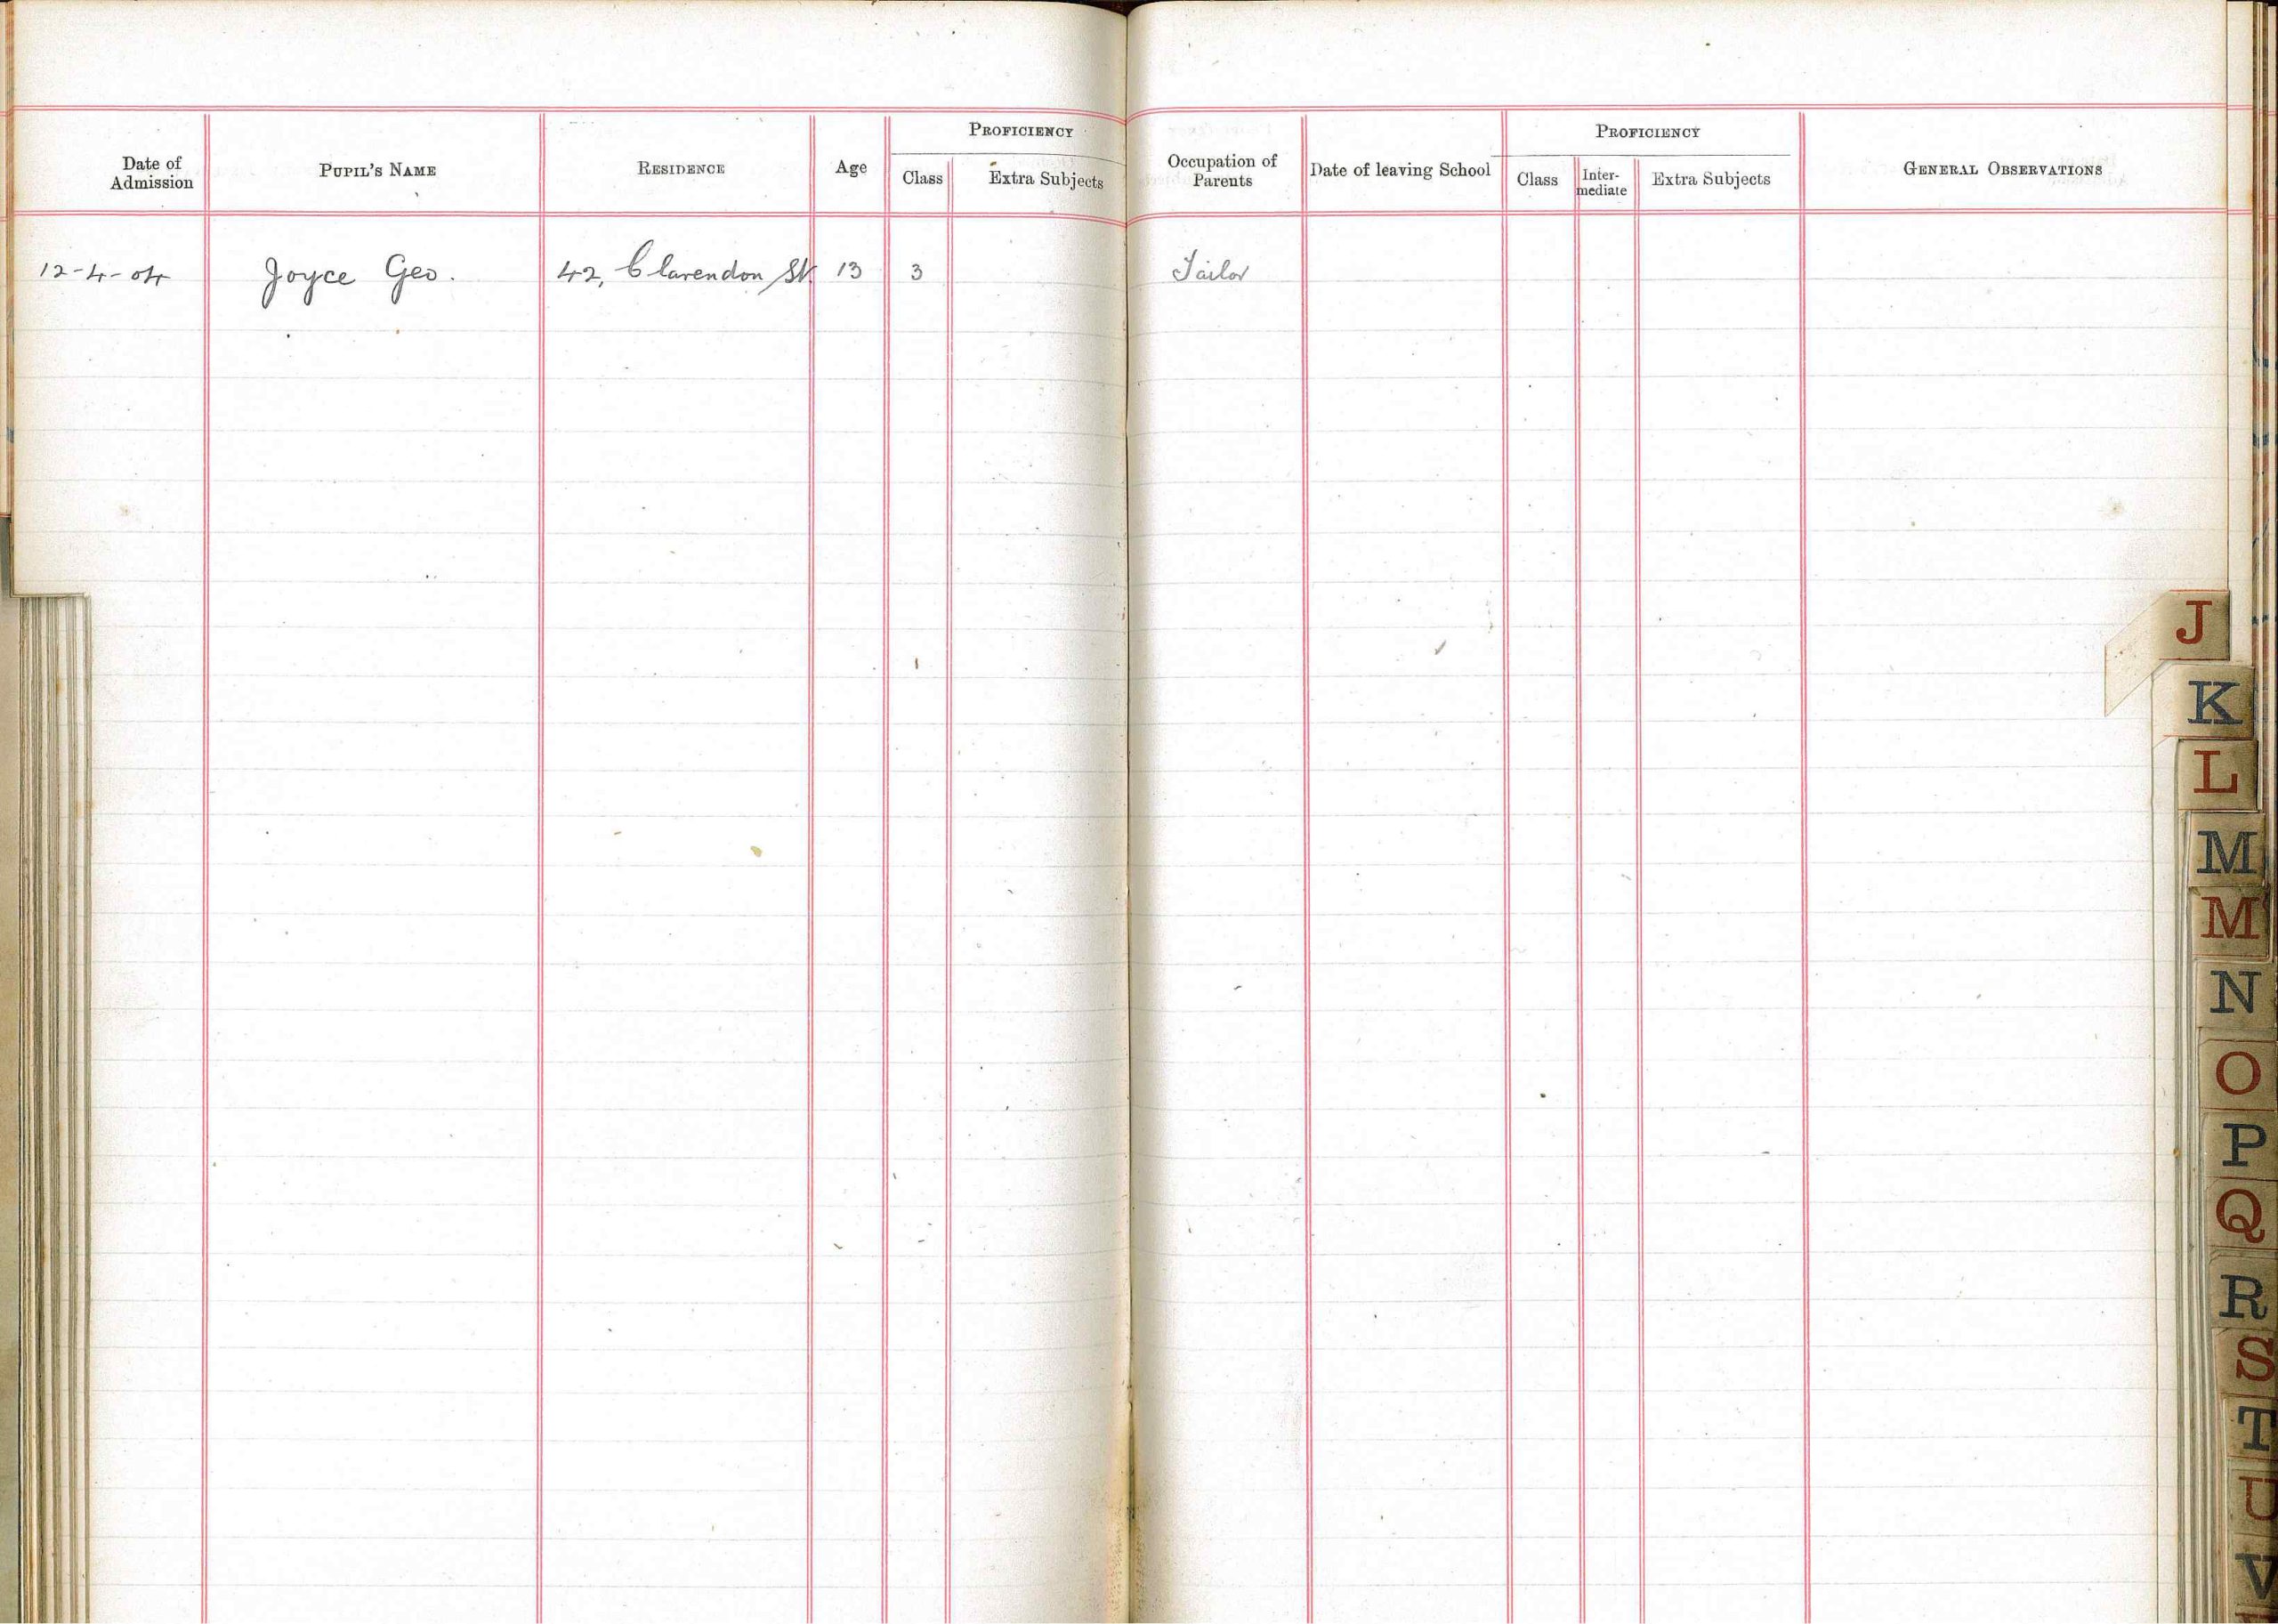 Date of Admission PUPIL'S NAME RESIDENCE Age PROFICIENCY Class Extra Subjects Occupation of Parents Date of leaving School PROFICIENCY Class Inter-mediate Extra Subjects GENERAL OBSERVATIONS
12-4-04 Joyce Geo. 42, Clarendon St. 13 3 Tailor
J
K
L
M
M
N
O
P
Q
R
S
T
U
V